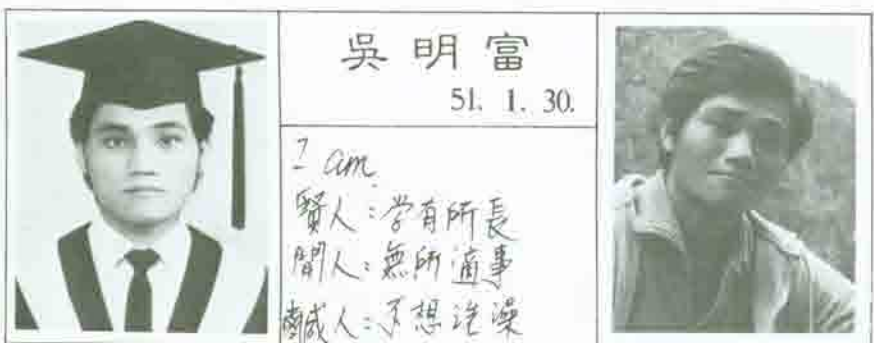 吳明富
51. 1. 30.
I am
賢人:学有所長
閒人:無所適事
鹹人:不想洗澡